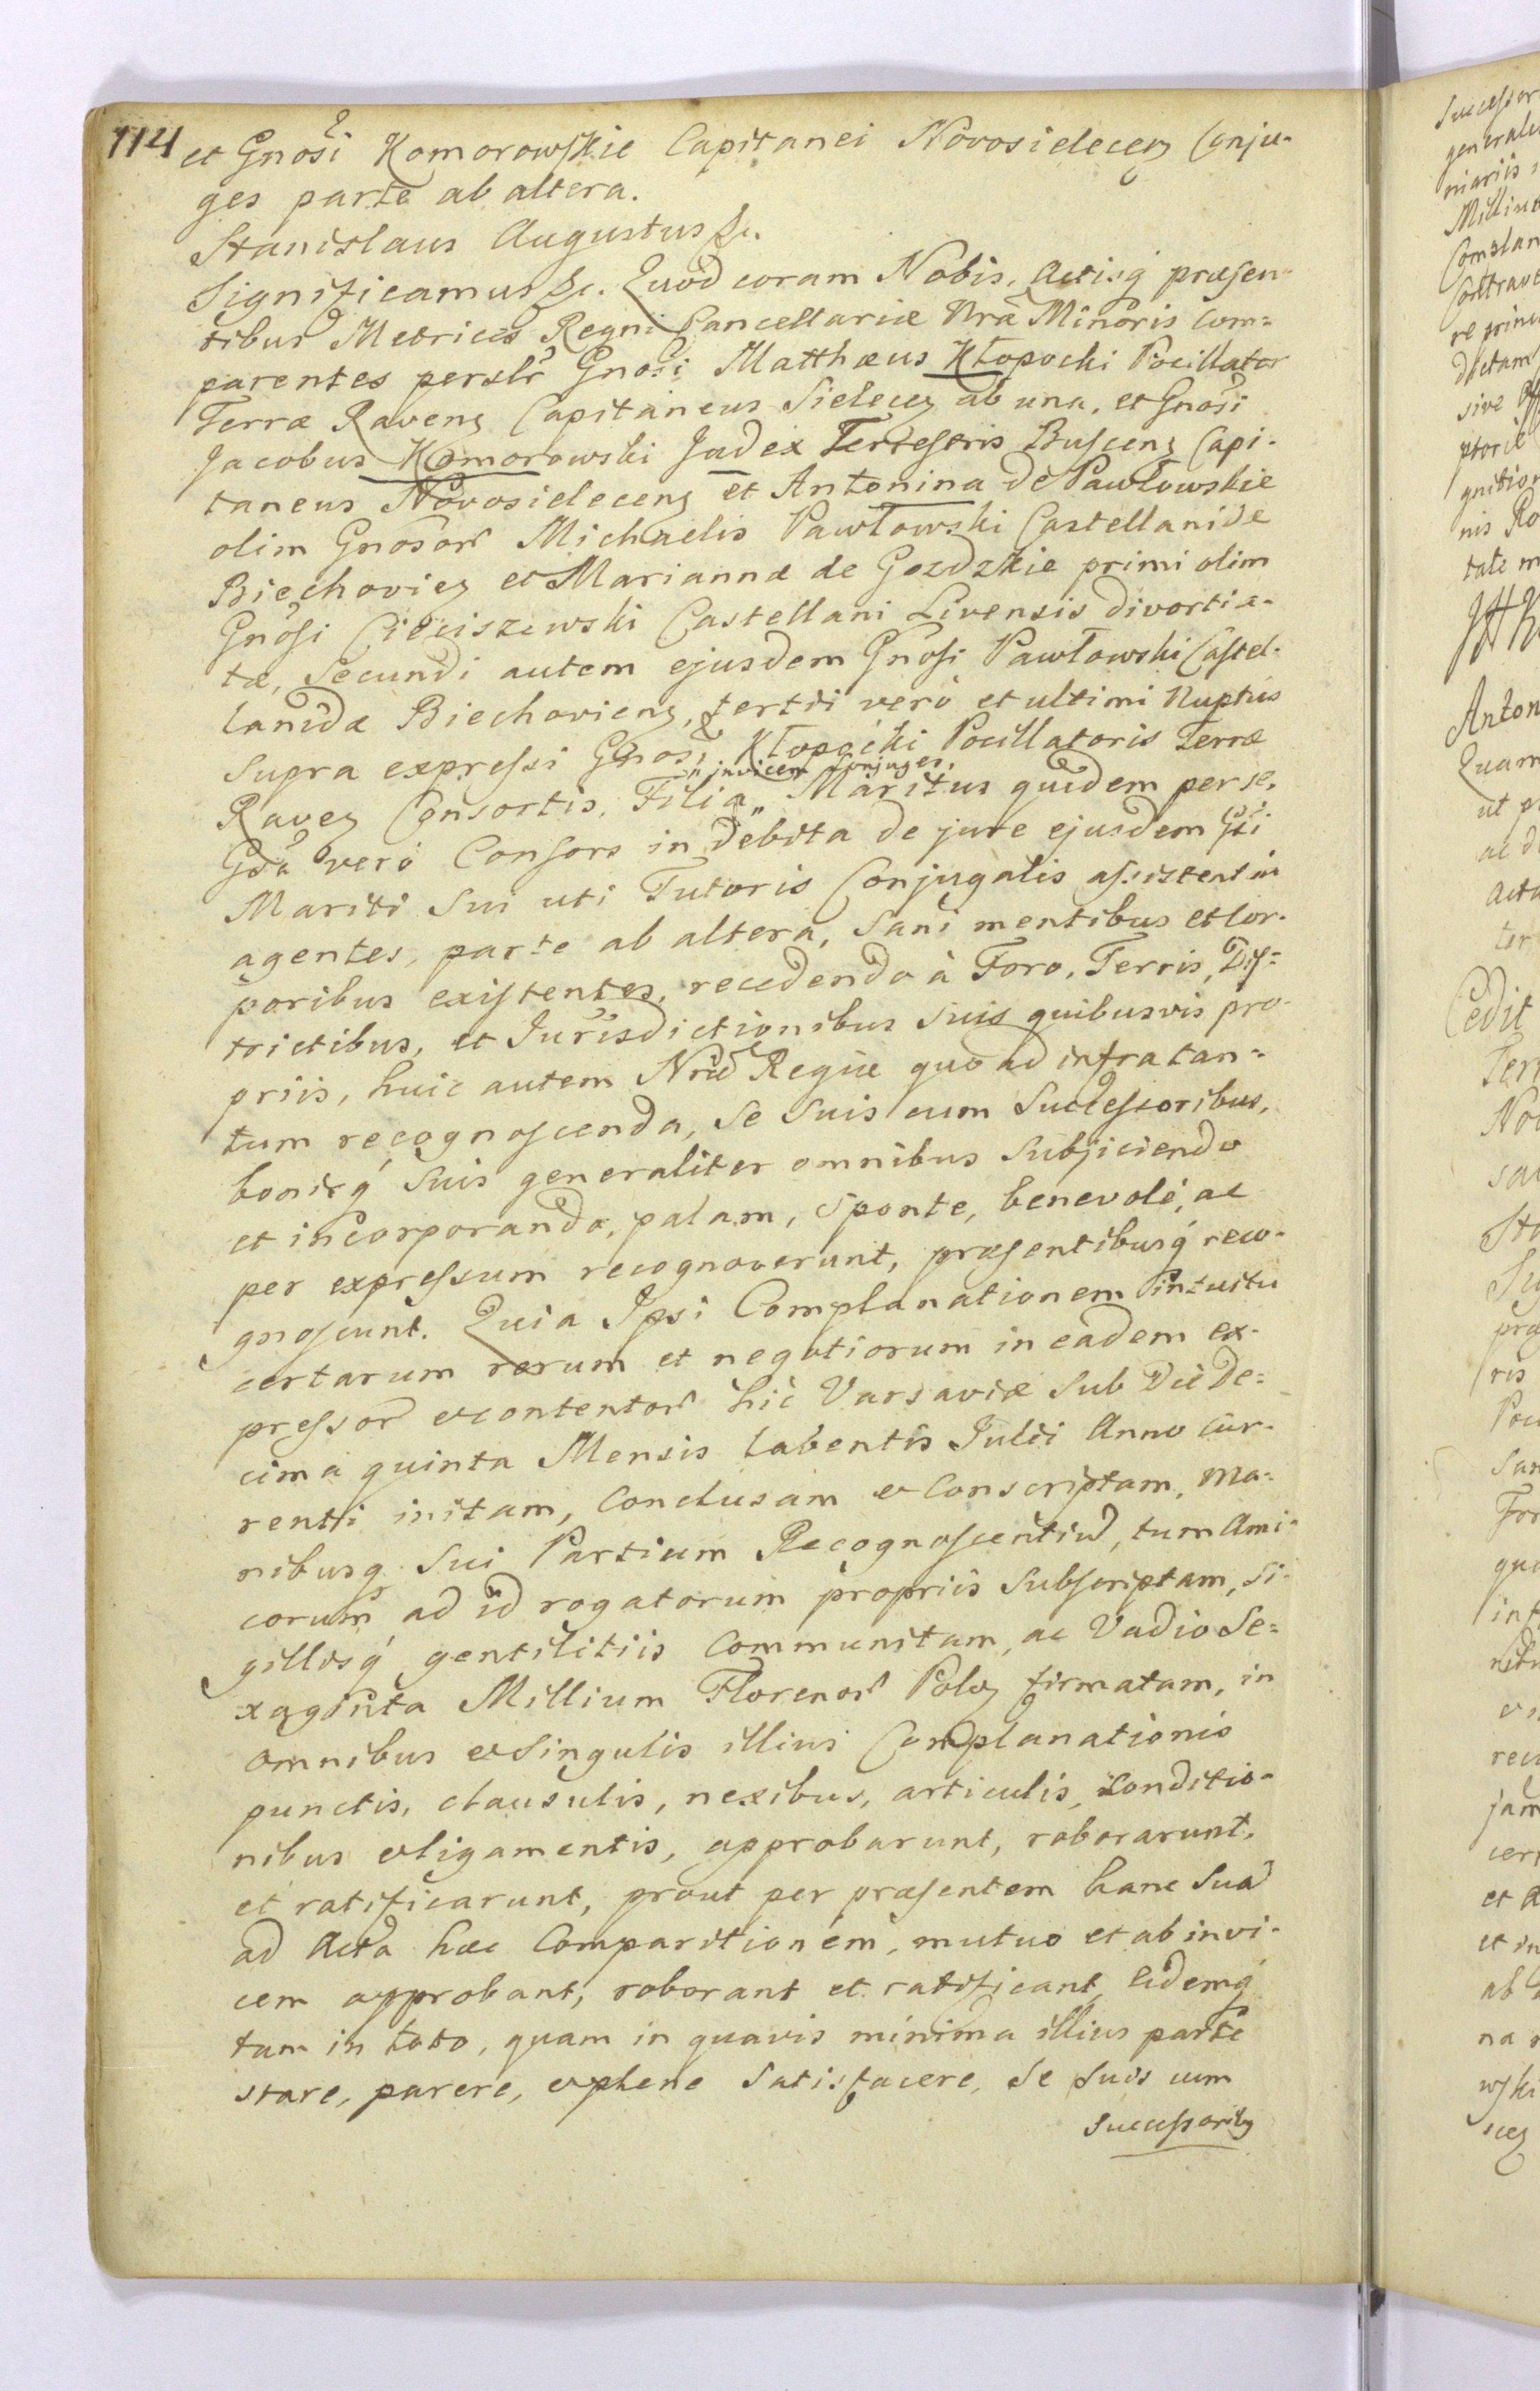 114
et Gnosi Komorowskie Capitanei Novosielecen Conju-
ges parte ab altera.
Stanislaus Augustus &c.
Significamus &c. Quod coram Nobis, Actisq́ præsen-
tibus Metrices Regni Cancellariæ Nrã Minoris Com=
parentes perslr̃ Gnosi Matthæus Kłopocki Pocillator
Terræ Ravenz Capitaneus Sielecez ab una, et Gnosi
Jacobus Komorowski Judex Terrestris Buscenz Capi-
taneus Novosielecenz et Antonina de Pawłowskie
olim Gnosor Michaelis Pawłowski Castellanidæ
Biechoviez et Mariannæ de Gozdzkie primi olim
Gnosi Cieciszewski Castellani Livensis divortia-
tæ, Secundi autem ejusdem Gnosi Pawłowski Castel-
lanidæ Biechovienz, tertii verò et ultimi Nuptûs
supra expressi Gnosi Kłopocki Pocillatoris Terræ
" invicem Conjuges,
Ravez Consortis, Filia " Maritus quidem per se,
Gsã verò Consors in debita de jure ejusdem Gsi
Mariti Sui uti Tutoris Conjugalis assistentia
agentes, parte ab altera, Sani mentibus et Cor-
poribus existentes, recedendo à Foro, Terris, Dis=
trictibus, et Jurisdictionibus suis quibusvis pro-
priis, huic autem Nrae Regiæ quo ad infra tan=
tum recognoscenda, Se Suis cum Successoribus,
bonisq́ Suis generaliter omnibus Subjiciendo
et incorporando, palam, sponte, benevolè, ac
per expressum recognoverunt, præsentibusq́ reco-
gnoscunt. Quia Ipsi Complanationem intuitu
certarum rerum et negotiorum in eadem ex-
pressor et contentor hic Varsaviæ Sub Die De=
cima quinta Mensis labentis Julii Anno Cur-
renti initam, Conclusam et Conscriptam, Ma-
nibusq Sui Partium Recognoscentiũ, tum Ami-
corum ad id rogatorum propriis Subscriptam, Si-
gillisq́ gentilitiis Communitam, ac Vadio Se=
xaginta Millium Florenor Polo firmatam, in
omnibus et Singulis illius Complanationis
punctis, clausulis, nexibus, articulis, conditio-
nibus et ligamentis, approbarunt, roborarunt,
et ratificarunt, prout per præsentem hanc Suã
ad Acta hæc Comparitionem, mutuo et ab invi-
cem approbant, roborant et ratificant, Eidemq́
tam in toto, quam in quavis minima illius parte
stare, parere, et plene Satisfacere, Se Suis cum
Successoribz